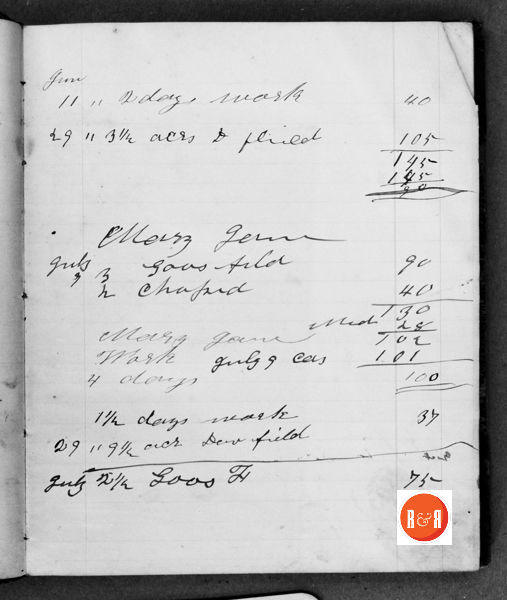 June
11 " 2 days work 40
29 " 3 1/2 acrs D field 105
145
145
Mary Jane
guly 3 Goos fild 90
9 2 Choped 40
130
Mary Jane Med 28
102
Work guly 9 cas 101
4 days 100
1 1/2 days work 37
29 " 9 1/2 acr Dav field
guly 2 1/2 Goos F 75
R&R